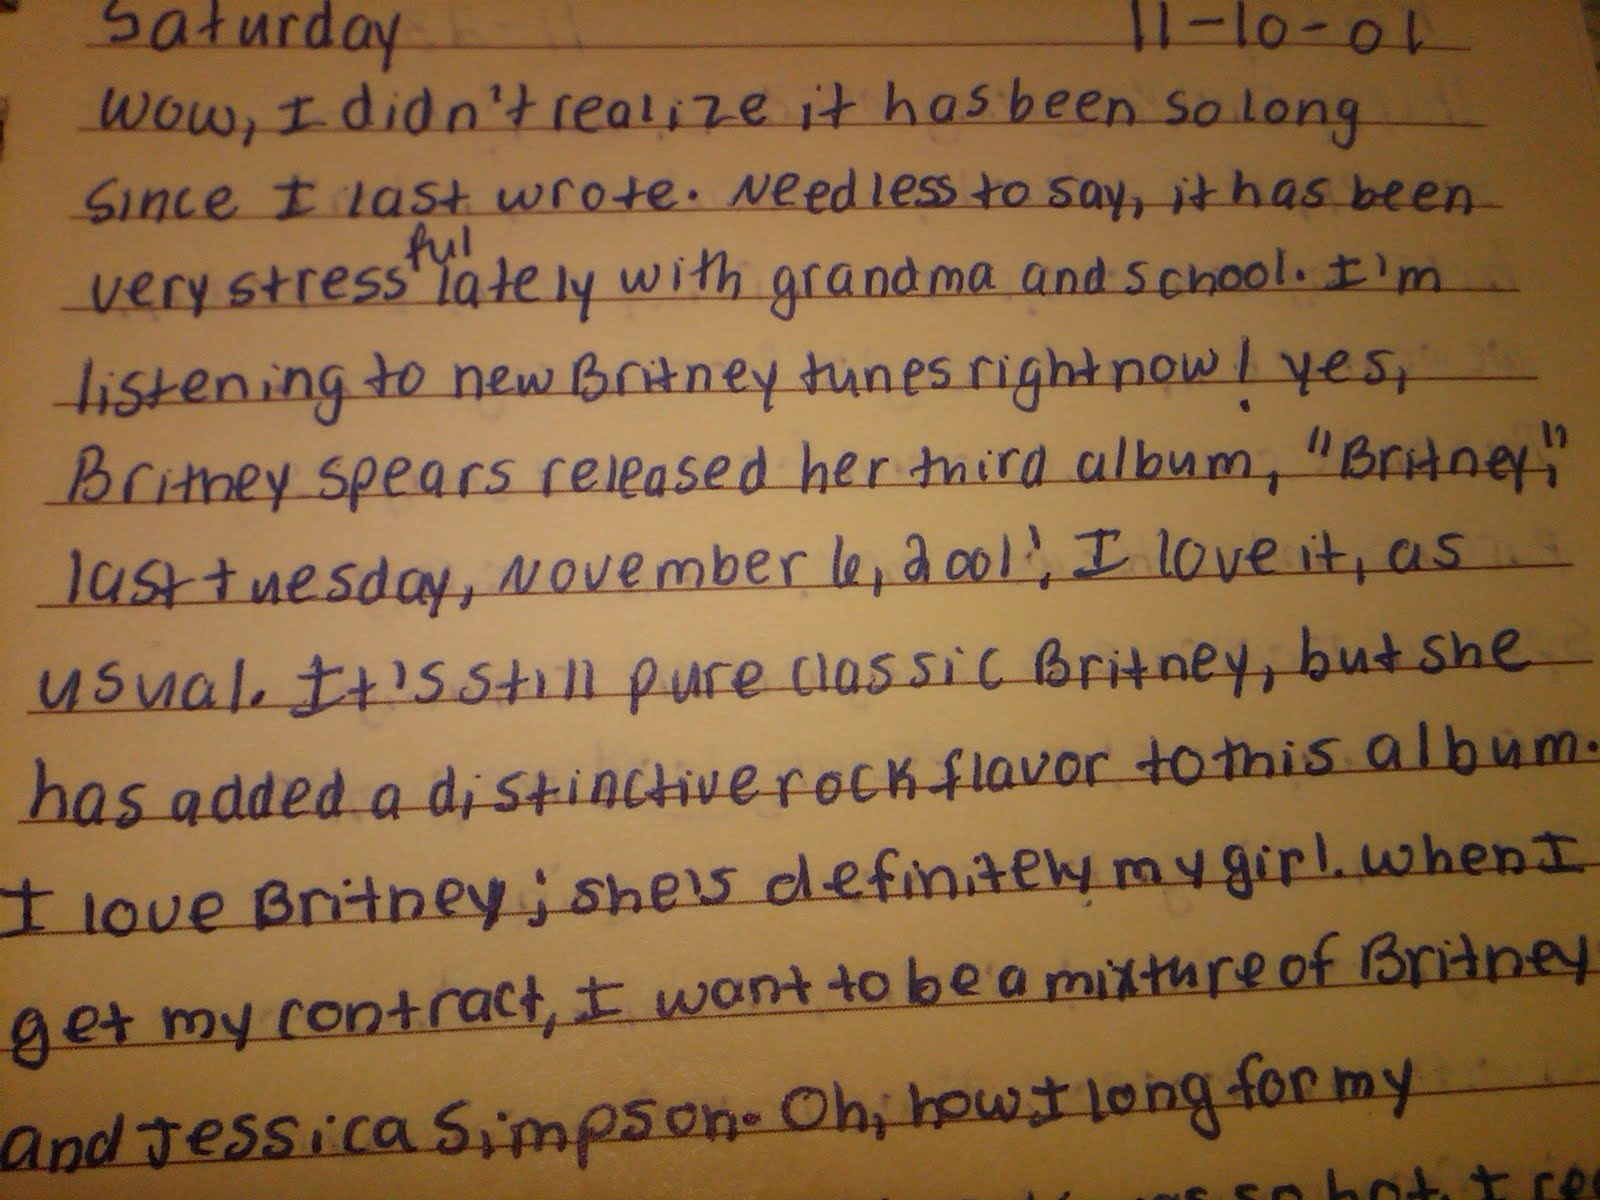 Saturday 11-10-01
Wow, I didn't realize it has been so long
since I last wrote. Needless to say, it has been
very stressful lately with grandma and school. I'm
listening to new Britney tunes right now! Yes,
Britney Spears released her third album, "Britney,"
last tuesday, November 6, 2001! I love it, as
usual. It's still pure classic Britney, but she
has added a distinctive rock flavor to this album.
I love Britney; she's definitely my girl. When I
get my contract, I want to be a mixture of Britney
and Jessica Simpson. Oh, how I long for my
so hot I